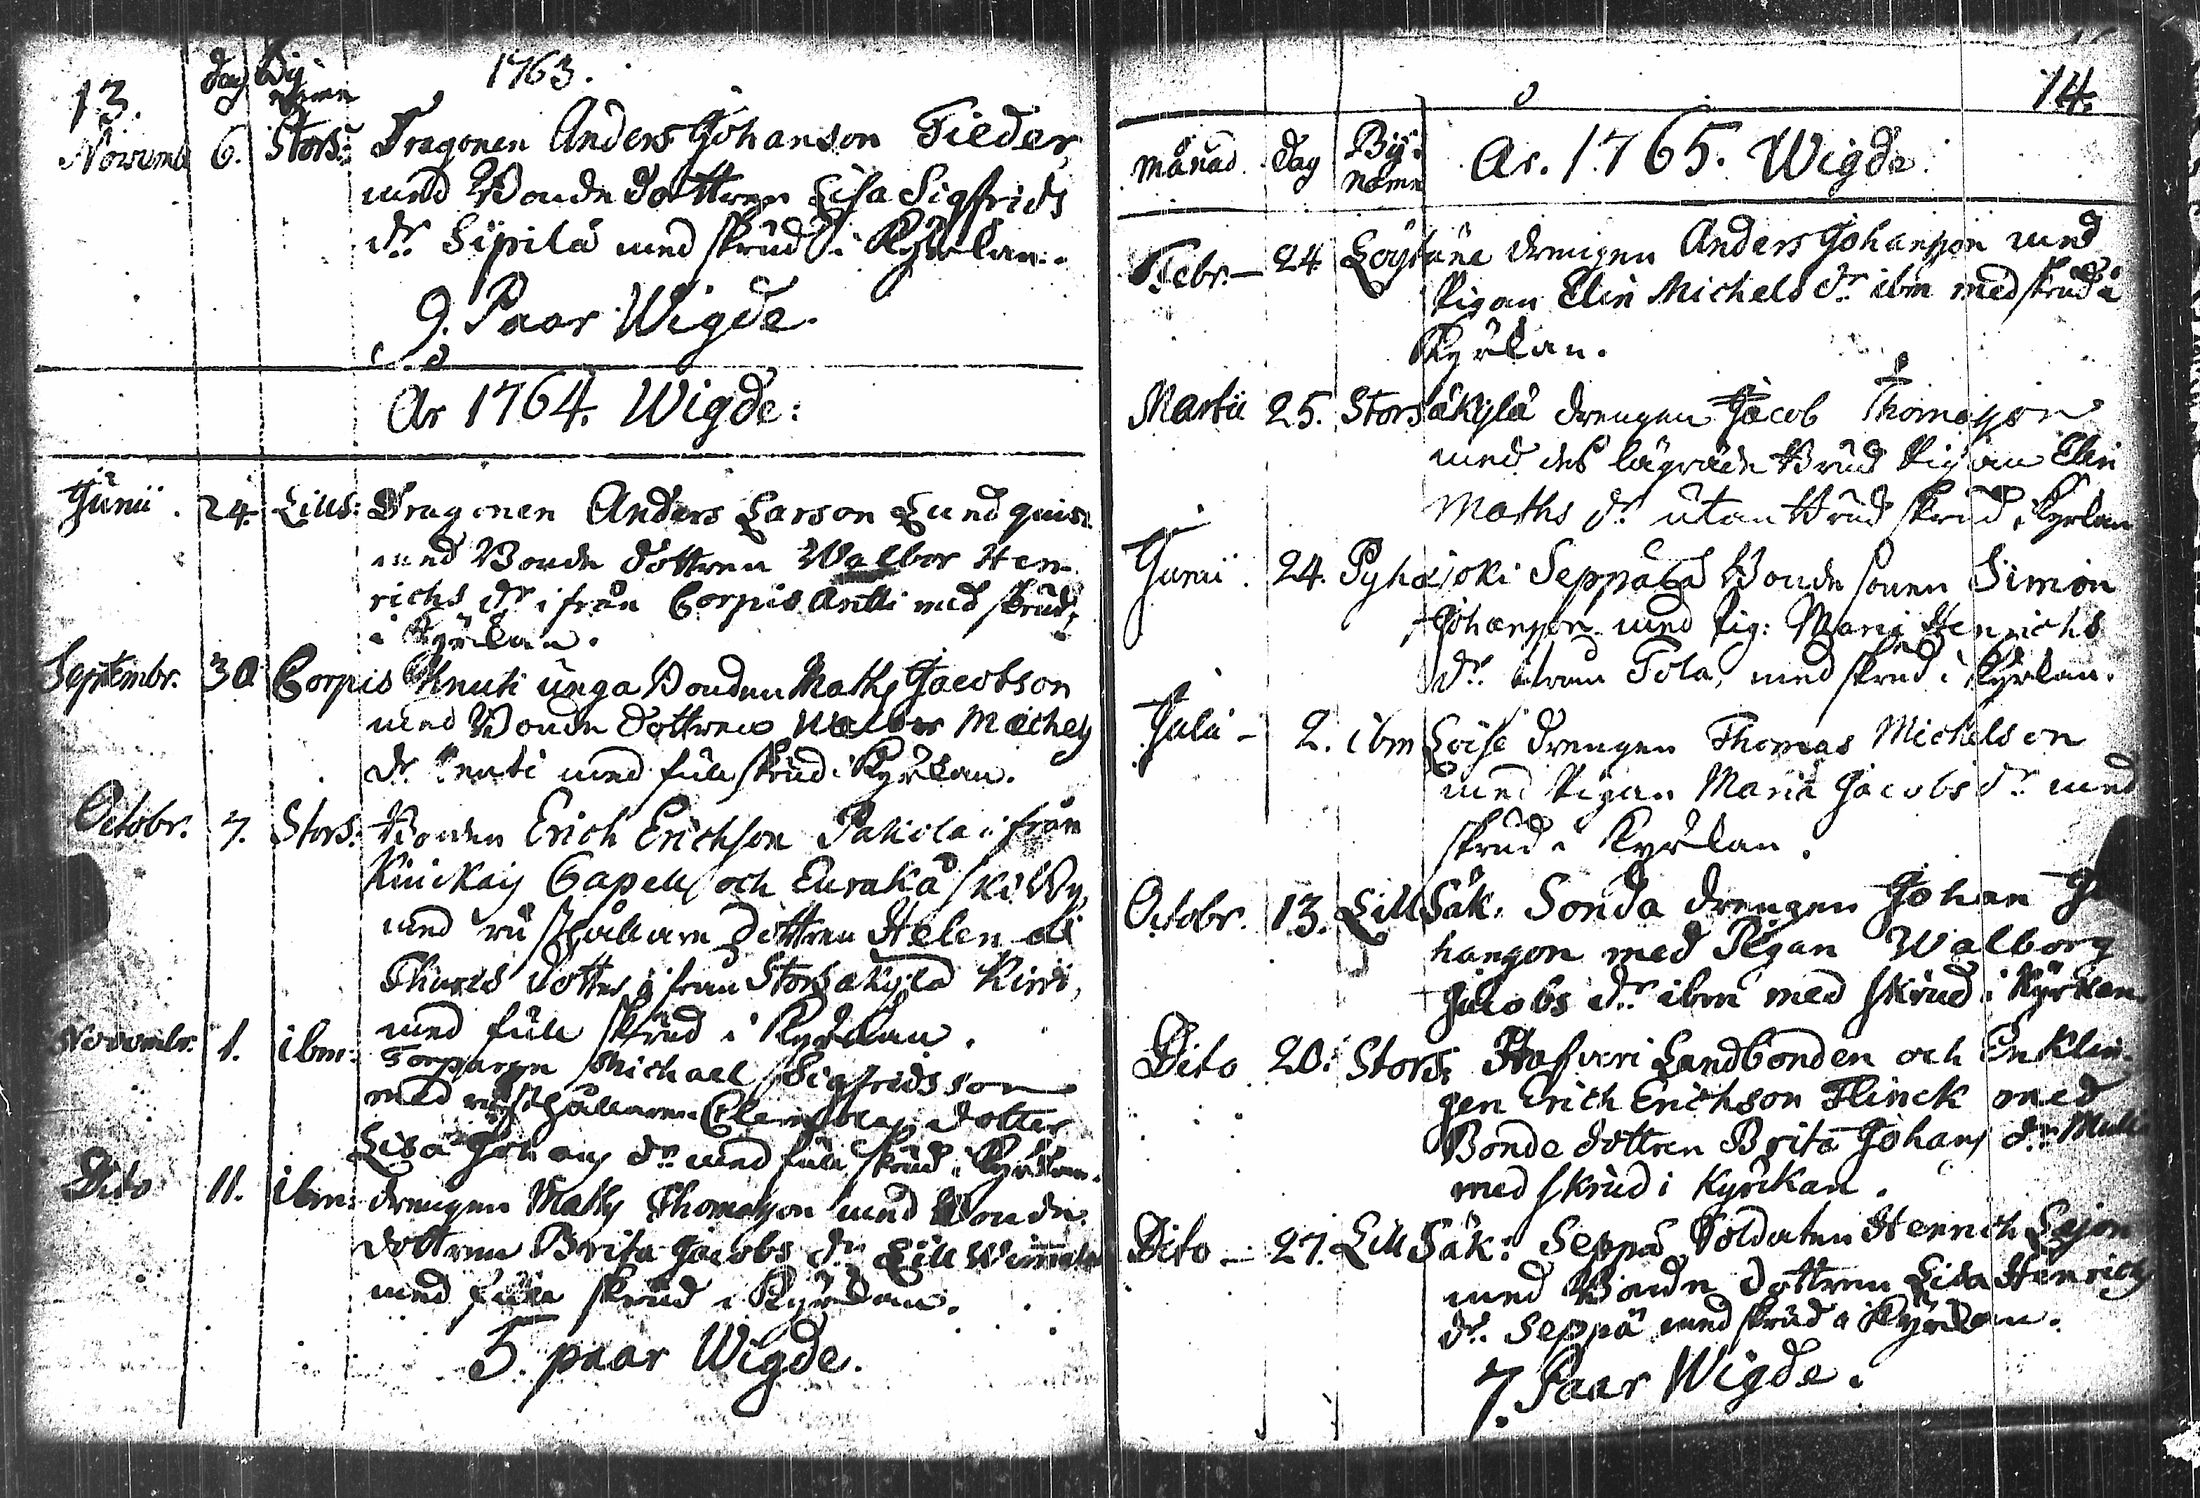 13. dag By namn 1763.
Novemb 6. Stors: Dragonen Anders Johanson Fieder
med Bonde dottren Lisa Sigfrids
dr Sipilä med skrud i Kyrkan.
9. Paar Wigde.
År 1764. Wigde:
Junii. 24. Lills: Dragonen Anders Larson Lundquist
med Bonde dottren Walbor Hen
richs dr ifrån Corpis Antti med skrud
i Kyrkan.
Septembr. 30 Corpis Knuti unga Bonden Maths Jacobson
med Bonde dottren Walbor Michels
dr Knuti med full skrud i Kyrkan.
Octobr. 7. Stors: Bonden Erich Erichson Pakola ifrån
Kiuikais Capell och Eurakåski By,
med rusthållare dottren Helena
Thures dotter ifrån Storsäkylä Kirri,
med full skrud i Kyrkan.
Novembr. 1. ibm: Torparen Michael Sigfridsson
med rusthållaren dotter
Lisa Johans dr med full skrud i Kyrkan.
Dito 11. ibm: drengen Maths Thomasson med Bonde
dottren Brita Jacobs dr Lill
med full skrud i Kyrkan.
5. paar Wigde.
14.
månad. dag By: namn År. 1765. Wigde.
Febr. — 24 Löytäne drengen Anders Johansson med
Pigan Elin Michels dr ibm med skrud i
Kyrkan.
Martii 25. Storsäkylä drengen Jacob Thomasson
med des lägrade Brud Pigan Elin
Maths dr utan Brud skrud i Kyrkan
Junii. 24. Pyhäjoki Seppälä Bonde sonen Simon
Johansson med Pig: Maria Henrichs
dr ifrån Tola, med skrud i Kyrkan.
Julii — 2. ibm drengen Thomas Michelson
med Pigan Maria Jacobs dr med
skrud i Kyrkan.
Octobr. 13. LillSäk: Sonda drengen Johan Jo
hanson med Pigan Walborg
Jacobs dr ibm med skrud i Kyrkan
Dito 20. Stors: Hafveri Landbonden och Enklin
gen Erich Erichson Flinck med
Bonde dottren Brita Johans dr
med skrud i Kyrkan.
Dito — 27. LillSäk: Seppä Soldaten Henrich Lejon
med Bonde dottren Lisa Henrichs
dr. Seppä med skrud i Kyrkan.
7. Paar Wigde.